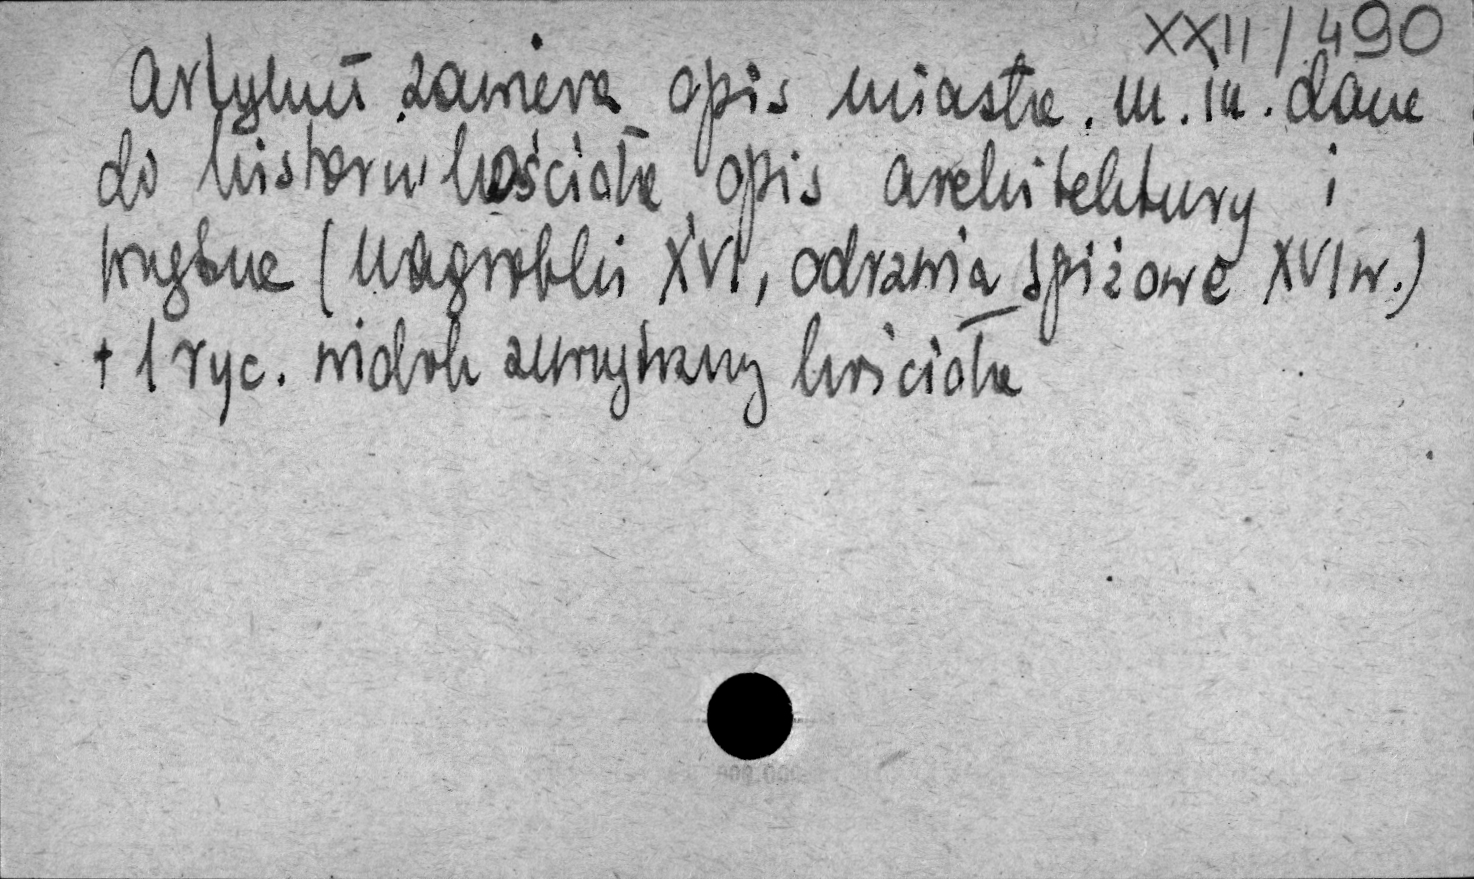 XXII/490
Artykuł zawiera opis miasta. m.in. dane
do historii kościoła, opis architektury i
wnętrza (nagrobki XVI, odrzwia spiżowe XVI w.)
+ 1 ryc. widok zewnętrzny kościoła